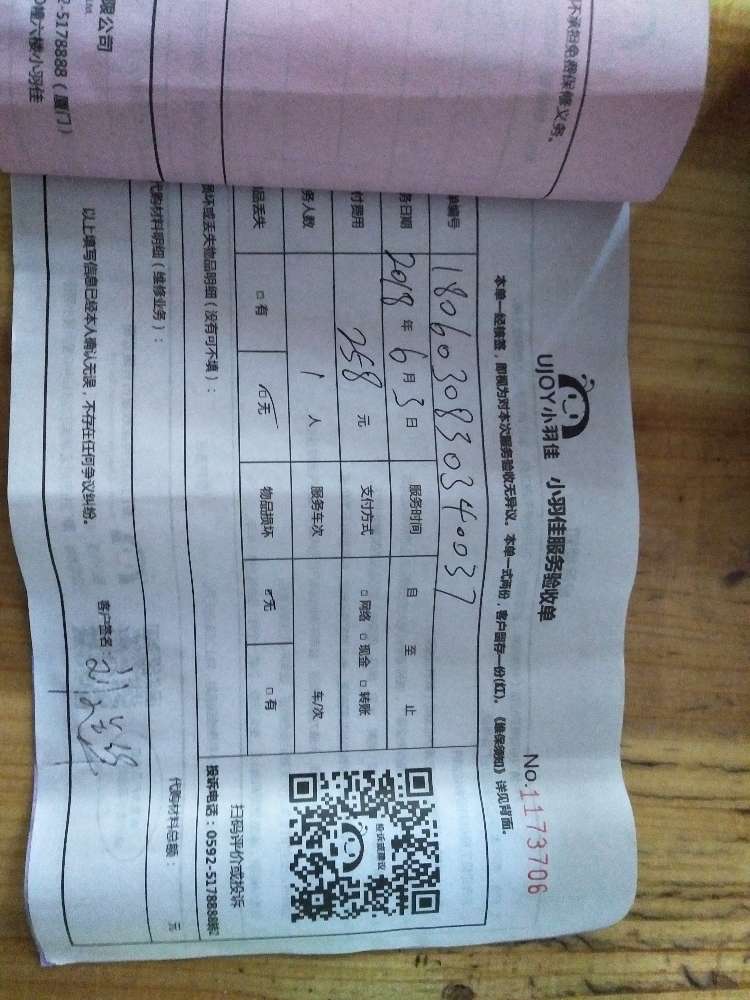 不承担免费保修义务。
限公司
2-5178888（厦门）
0幢六楼小羽佳
UJOY小羽佳 小羽佳服务验收单
No.1173706
本单一经接签，即视为对本次服务验收无异议。本单一式两份，客户留存一份(红)。《维保须知》详见背面。
单编号 1806030830340037
务日期 2018年6月3日 服务时间 自 至 止
付费用 258元 支付方式 □网络 □现金 □转账
务人数 1人 服务车次 车/次
品丢失 □有 ☑无 物品损坏 ☑无 □有
投诉或建议
扫码评价或投诉
投诉电话：0592-5178888转
损坏或丢失物品明细（没有可不填）：
代购材料明细（维修业务）：
代购材料总额： 元
以上填写信息已经本人确认无误，不存在任何争议纠纷。
客户签名：